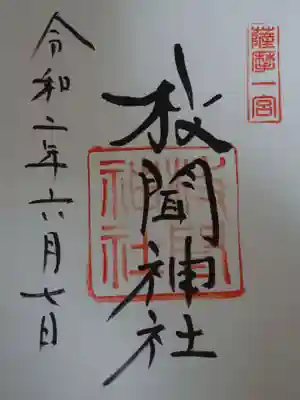 薩摩一宮
枚聞神社
令和二年六月七日